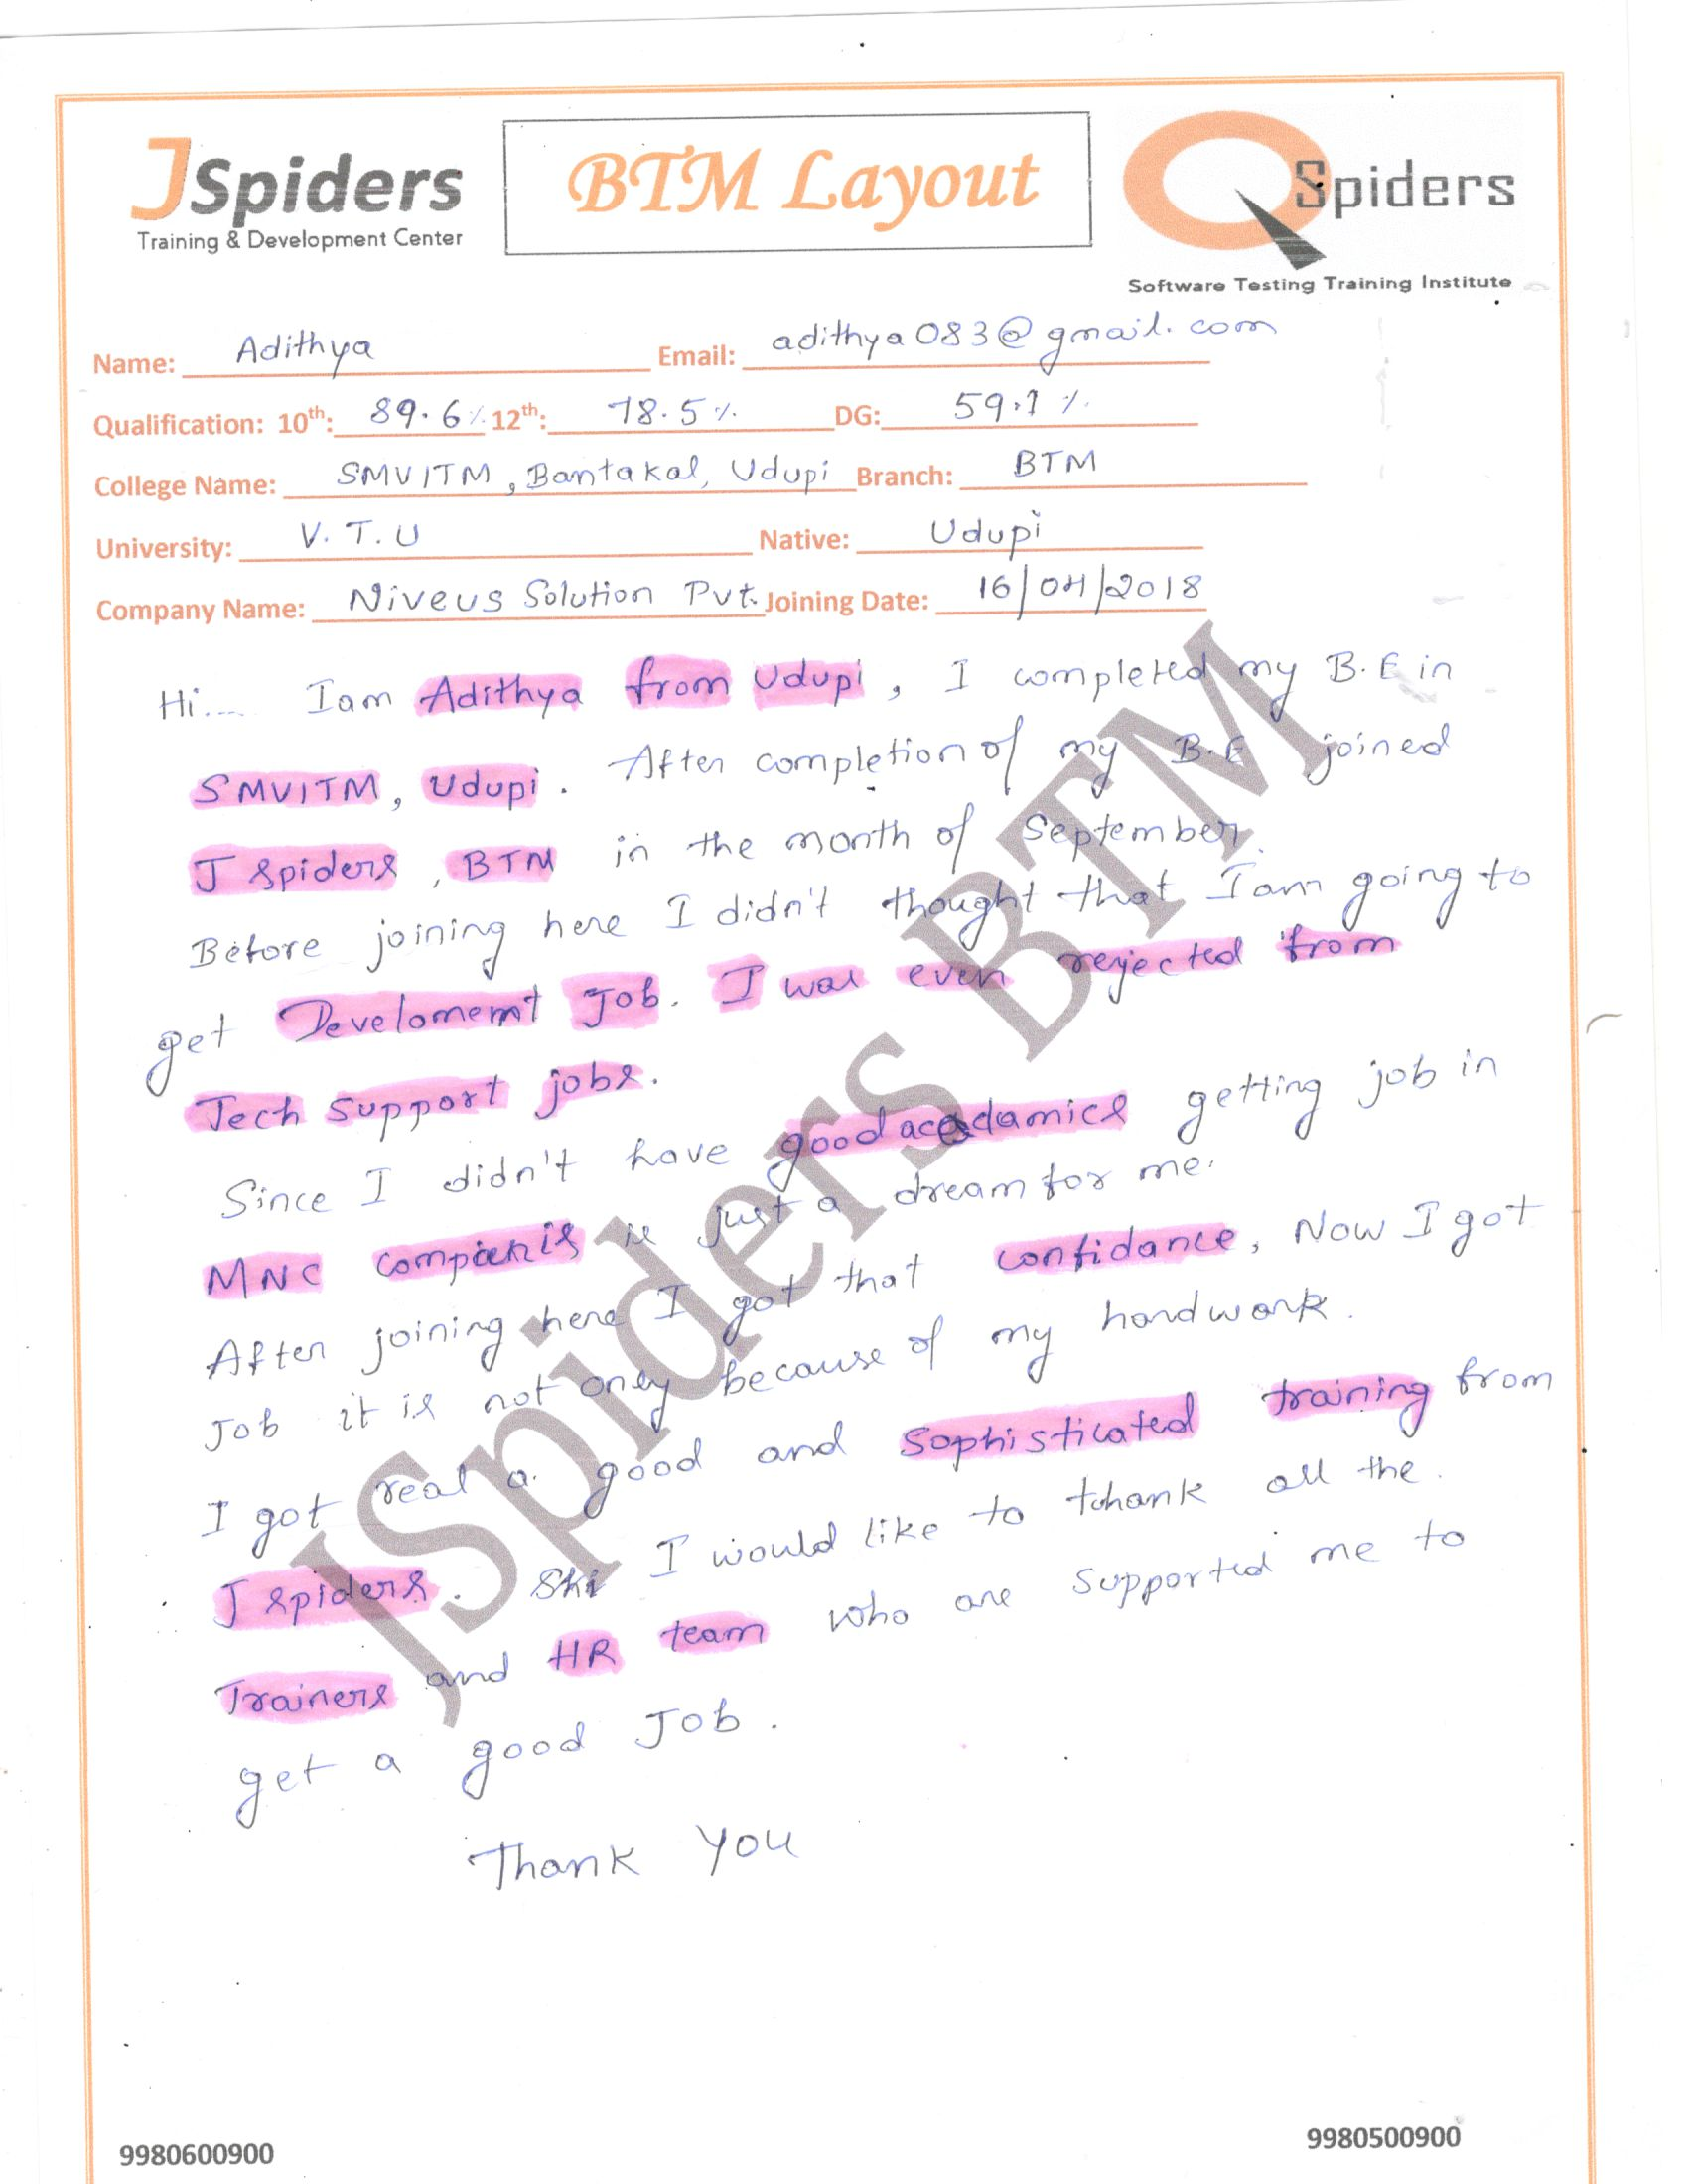 JSpiders
Training & Development Center
BTM Layout
QSpiders
Software Testing Training Institute
Name: Adithya Email: adithya083@gmail.com
Qualification: 10th: 89.6% 12th: 78.5% DG: 59.1%
College Name: SMVITM, Bantakal, Udupi Branch: BTM
University: V.T.U Native: Udupi
Company Name: Niveus Solution Pvt. Joining Date: 16/04/2018
Hi... I am Adithya from Udupi, I completed my B.E in
SMVITM, Udupi. After completion of my B.E joined
J Spiders, BTM in the month of September.
Before joining here I didn't thought that I am going to
get Develomemt Job. I was even rejected from
Tech Support jobs.
Since I didn't have good acadamics getting job in
MNC is just a dream for me.
After joining here I got that confidance, Now I got
Job it is not only because of my hardwork.
I got real a good and Sophisticated training from
J Spiders. I would like to thank all the
Trainers and HR team who are supported me to
get a good Job.
Thank You
JSpiders BTM
9980600900
9980500900